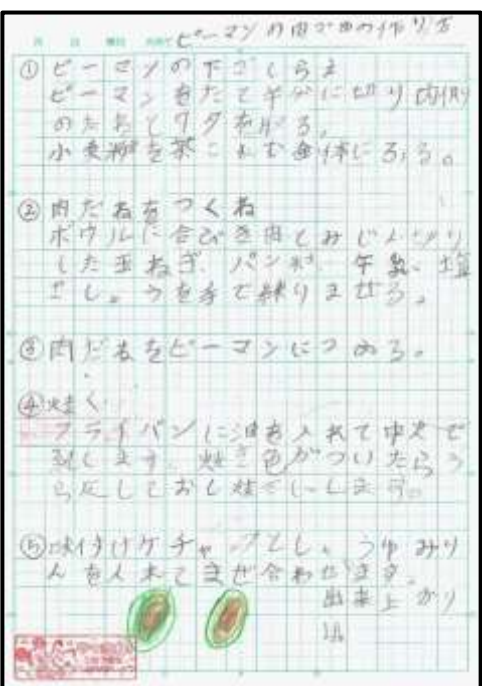 ピーマンの肉づめの作り方
① ピーマンの下ごしらえ
ピーマンをたて半分に切り内側
のたねとワタを取る。
小麦粉を茶こしで全体にふる。
② 肉だねをつくね
ボウルに合びき肉とみじん切り
した玉ねぎ、パン粉、牛乳、塩
こしょうを手で練りませる。
③ 肉だねをピーマンにつめる。
④ 焼く
フライパンに油を入れて中火で
熱します。焼き色がついたらう
ら返して
⑤ 味付けケチャップとしょうゆみり
んを入れてまぜ合わせます。
出来上がり